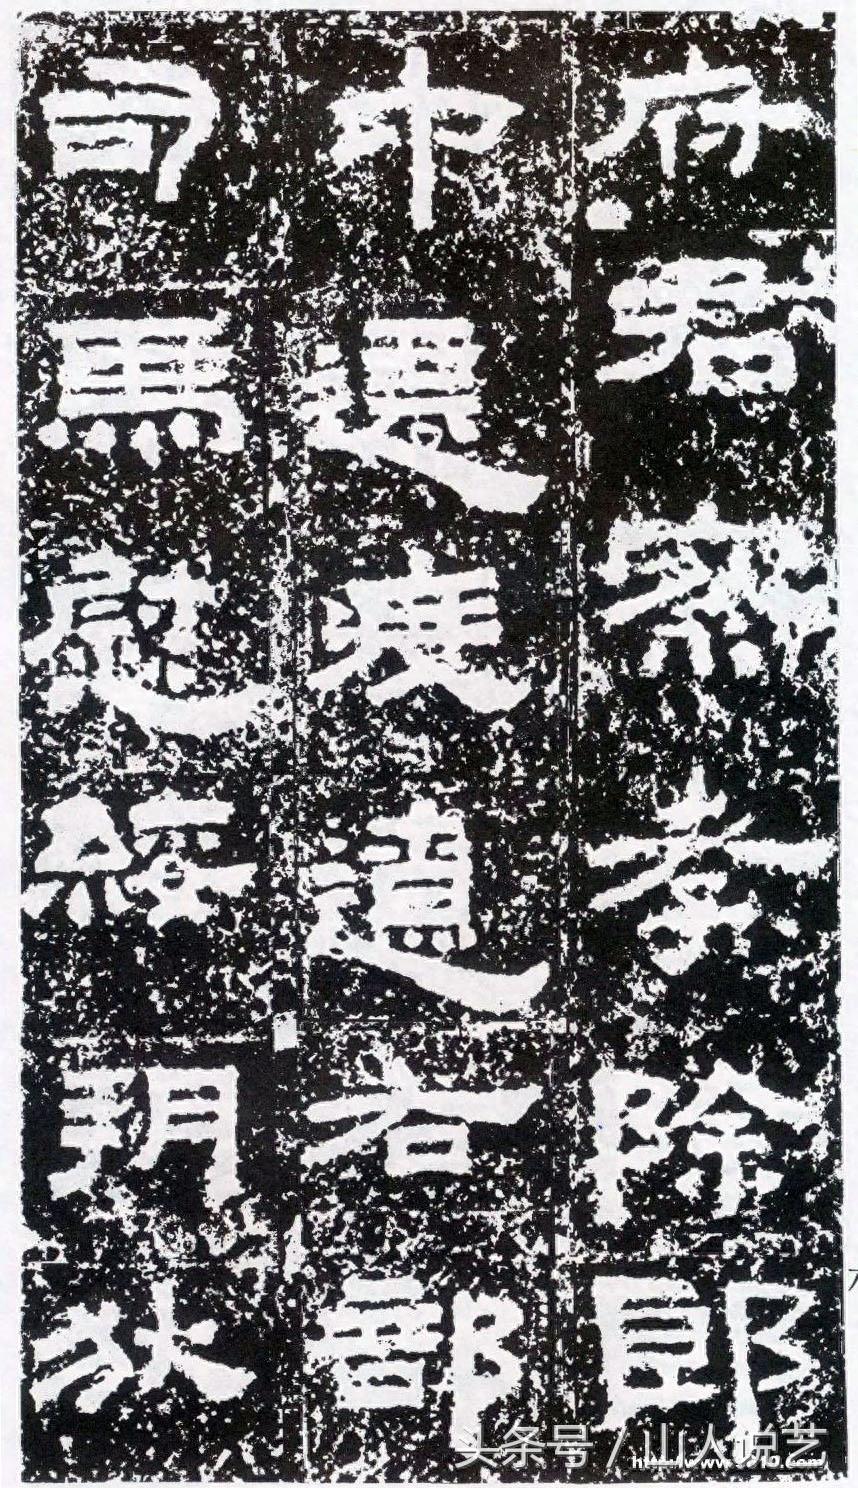 府君察孝除郎
中遷度遼右部
司馬慰綏朔狄
头条号 / 山人说艺